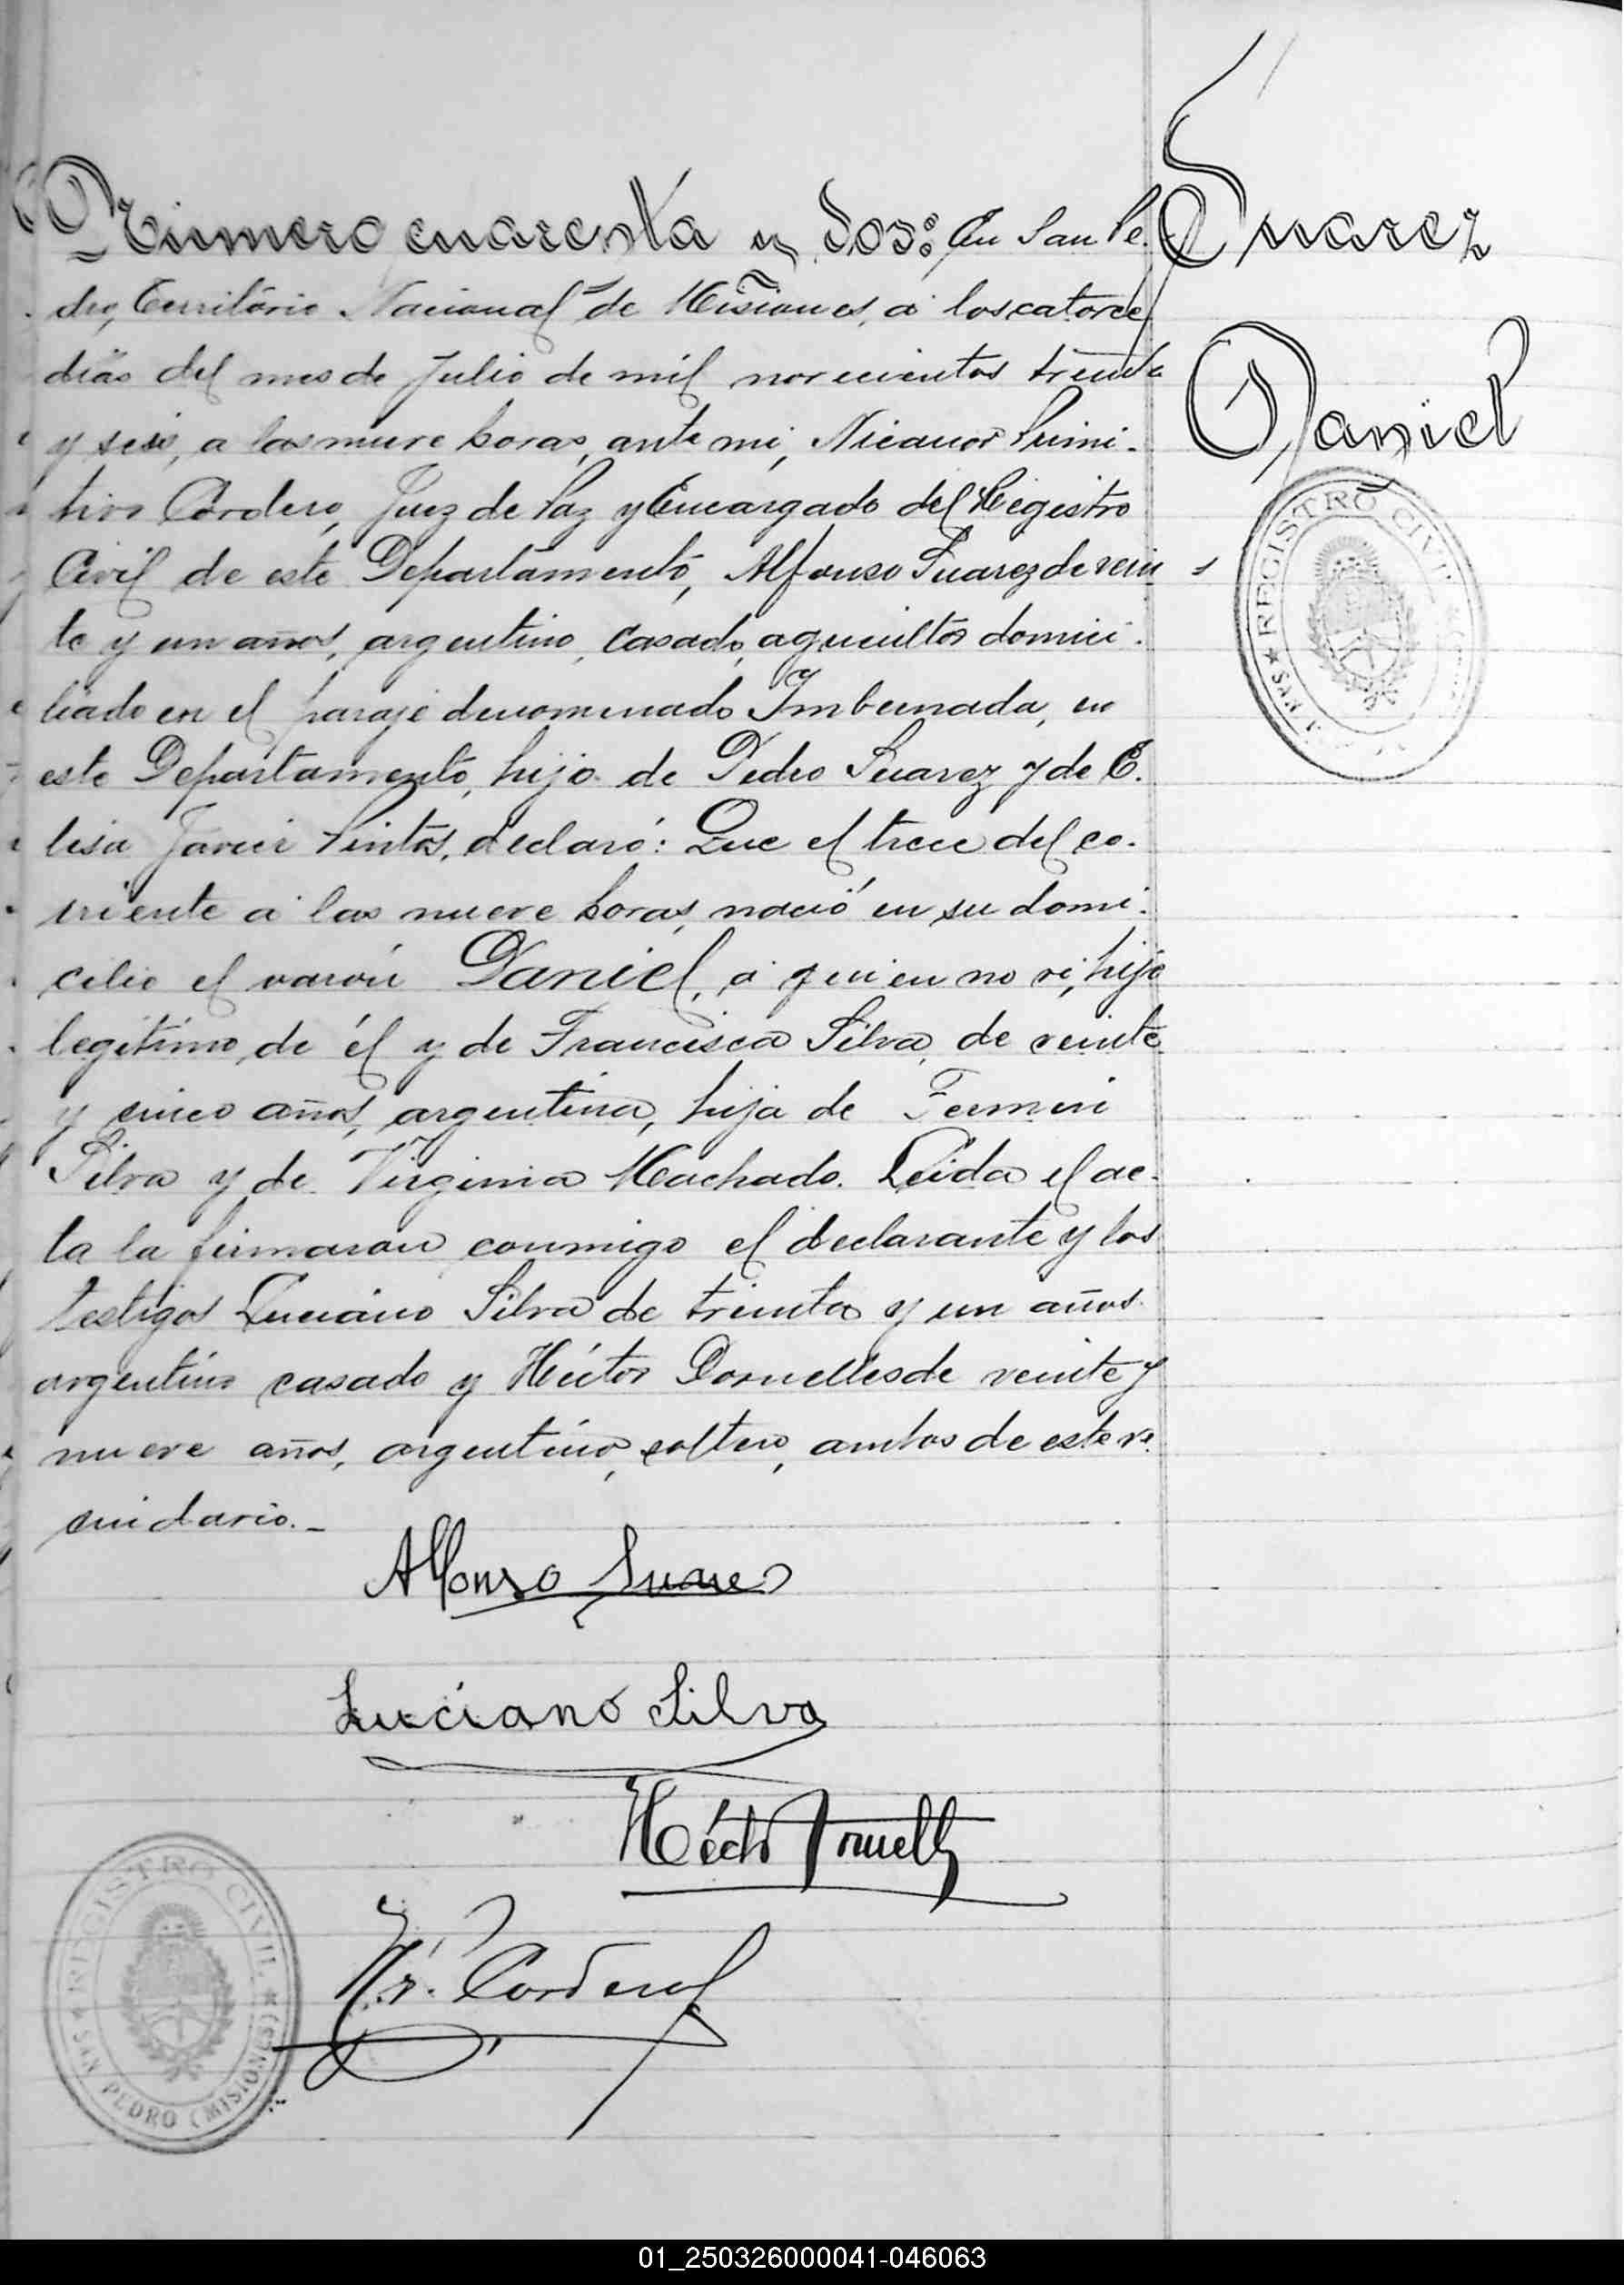 Número cuarenta y dos: En San Pe-
dro, Territorio Nacional de Misiones, a los catorce
días del mes de Julio de mil novecientos treinta
y seis, a las nueve horas, ante mi, Nicanor Primi-
tivo Cordero, Juez de Paz y Encargado del Registro
Civil de este Departamento, Alfonso Suarez de vein
te y un años, argentino, casado, agricultor domici-
liado en el paraje denominado Imbernada, en
este Departamento, hijo de Pedro Suarez y de E-
lisa Javier Pintos, declaró: Que el trece del co-
rriente a las nueve horas, nació en su domi-
cilio el varón Daniel, a quien no vi, hijo
legítimo de él y de Francisca Silva, de veinte
y cinco años, argentina, hija de Fermin
Silva y de Virginia Machado. Leida el ac-
ta la firmaron conmigo el declarante y los
testigos Luciano Silva de treinta y un años
argentino casado y Héctor Dornelles de veinte y
nueve años, argentino, soltero, ambos de este ve-
cindario.-
Suarez
Daniel
REGISTRO CIVIL
SAN
Alfonso Suarez
Luciano Silva
Héctor
N. P. Cordero
REGISTRO CIVIL
SAN PEDRO (MISIONES)
01_250326000041-046063